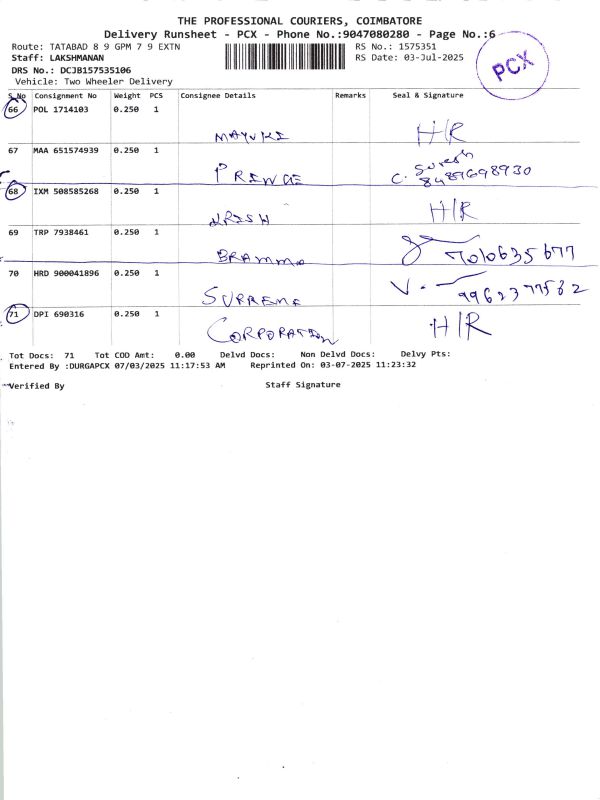 THE PROFESSIONAL COURIERS, COIMBATORE
Delivery Runsheet - PCX - Phone No.:9047080280 - Page No.:6
Route: TATABAD 8 9 GPM 7 9 EXTN RS No.: 1575351
Staff: LAKSHMANAN RS Date: 03-Jul-2025
DRS No.: DCJB157535106
Vehicle: Two Wheeler Delivery
PCX
S.No Consignment No Weight PCS Consignee Details Remarks Seal & Signature
66 POL 1714103 0.250 1
MAYUKI H/R
67 MAA 651574939 0.250 1
PRINCE C. Suresh
8489698930
68 IXM 508585268 0.250 1
KRISH H/R
69 TRP 7938461 0.250 1
BRAMMA 7010635677
70 HRD 900041896 0.250 1
SUPREME V. 9962377582
71 DPI 690316 0.250 1
CORPORATION H/R
Tot Docs: 71 Tot COD Amt: 0.00 Delvd Docs: Non Delvd Docs: Delvy Pts:
Entered By :DURGAPCX 07/03/2025 11:17:53 AM Reprinted On: 03-07-2025 11:23:32
Verified By Staff Signature